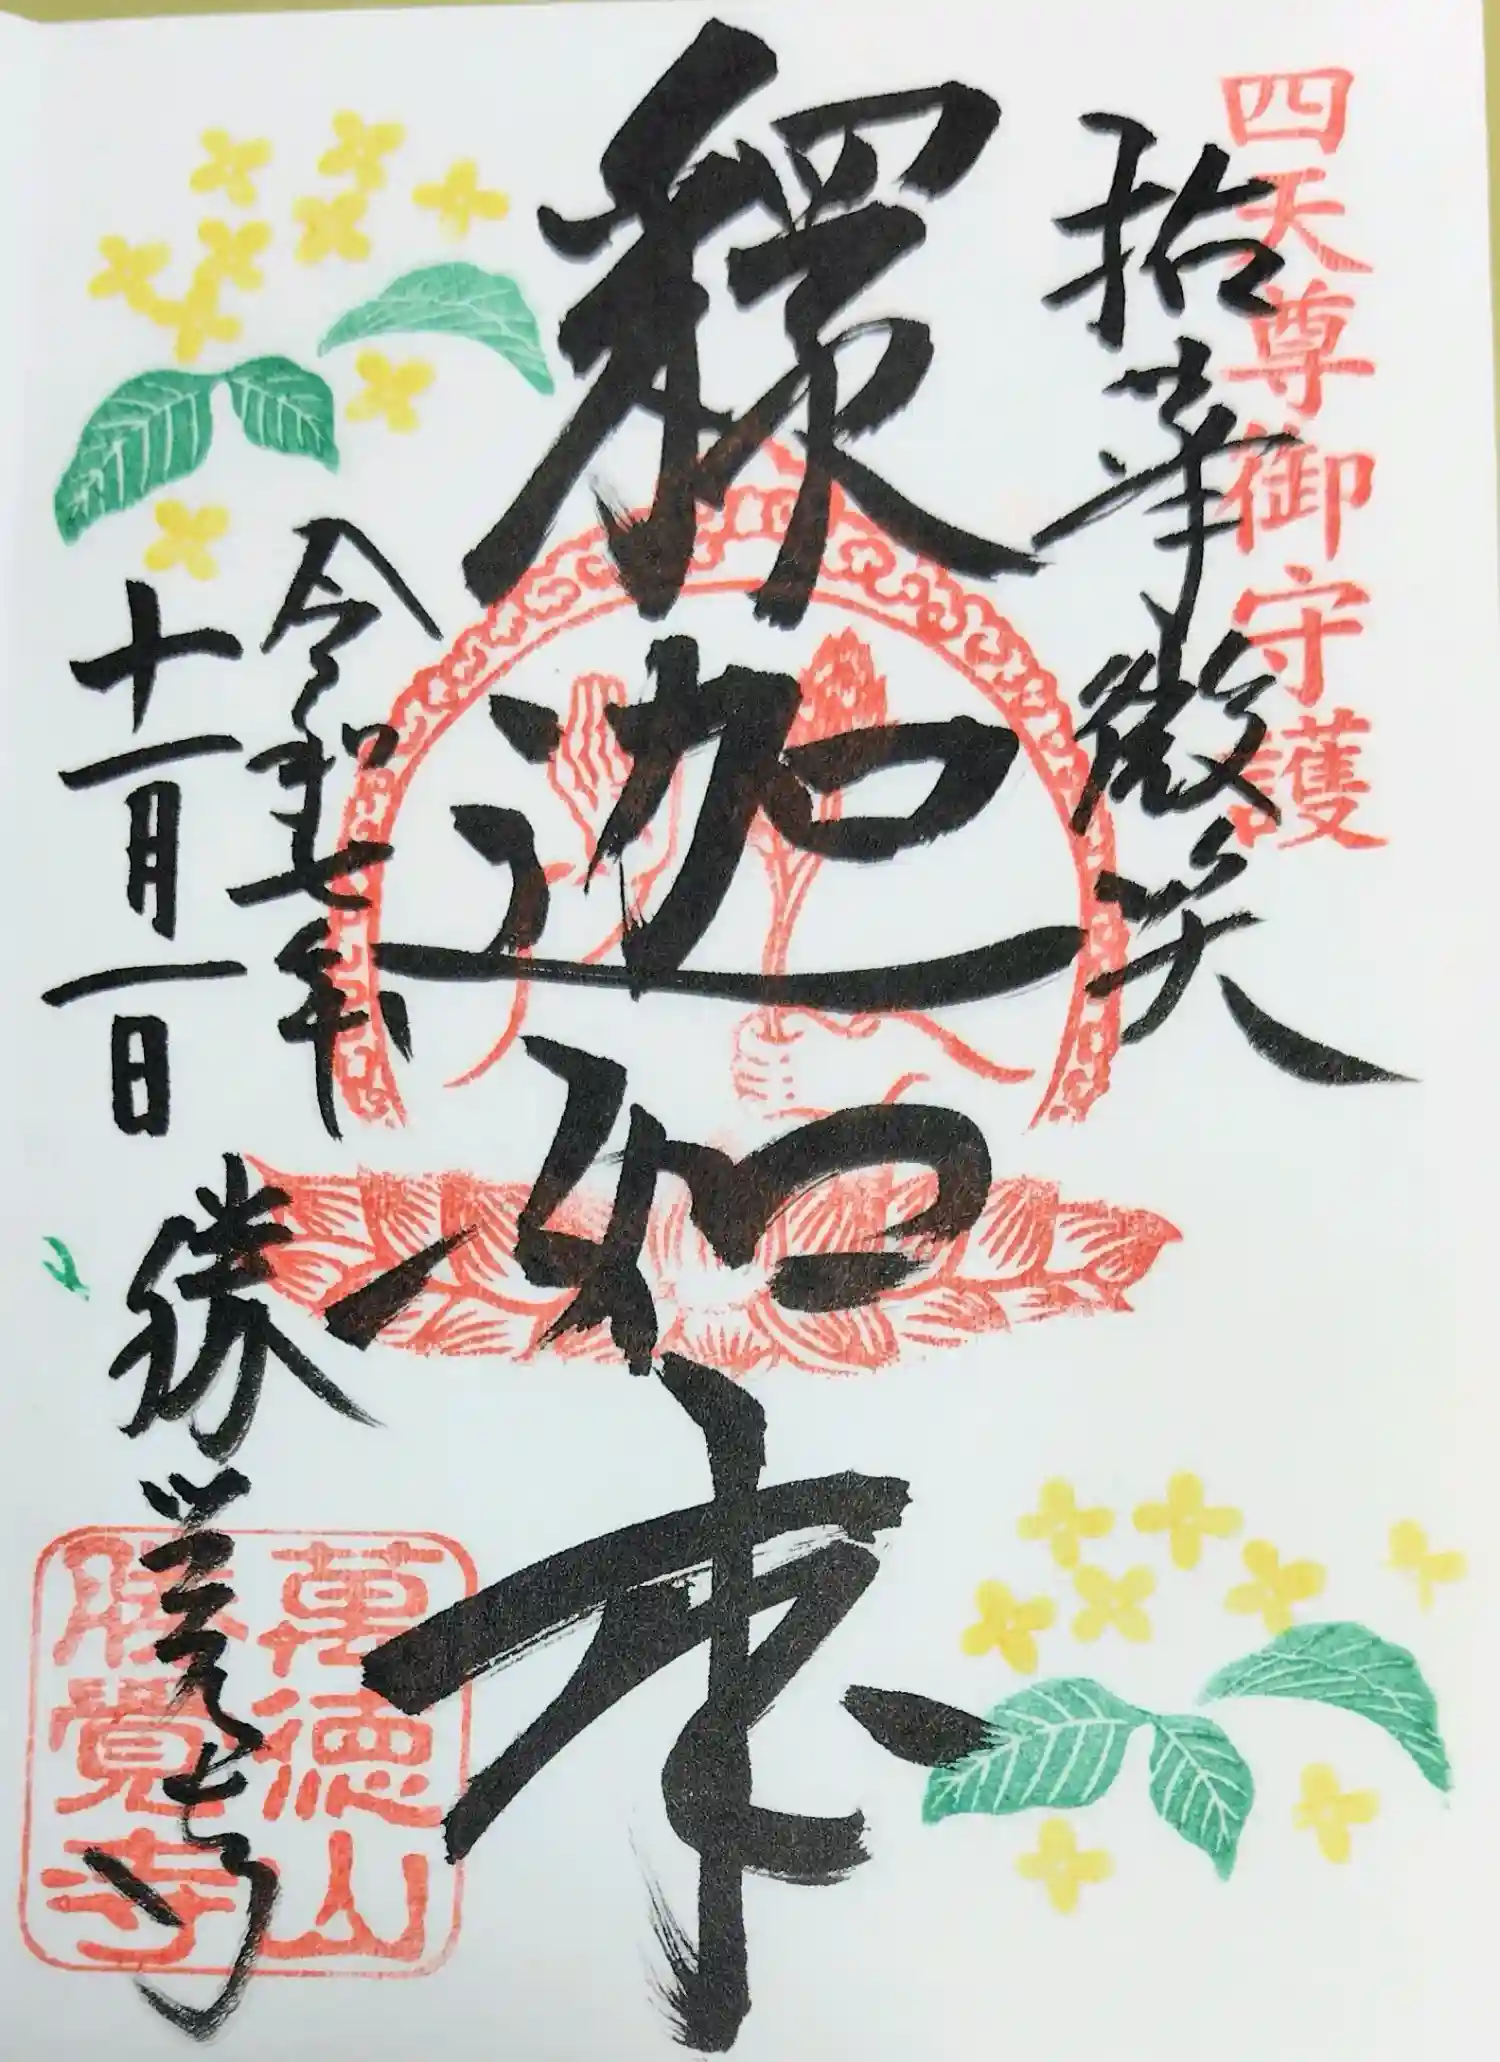 四天尊御守護
拈華微笑
釈迦如来
令和七年
十一月一日
勝覚寺
萬徳山
勝覺寺